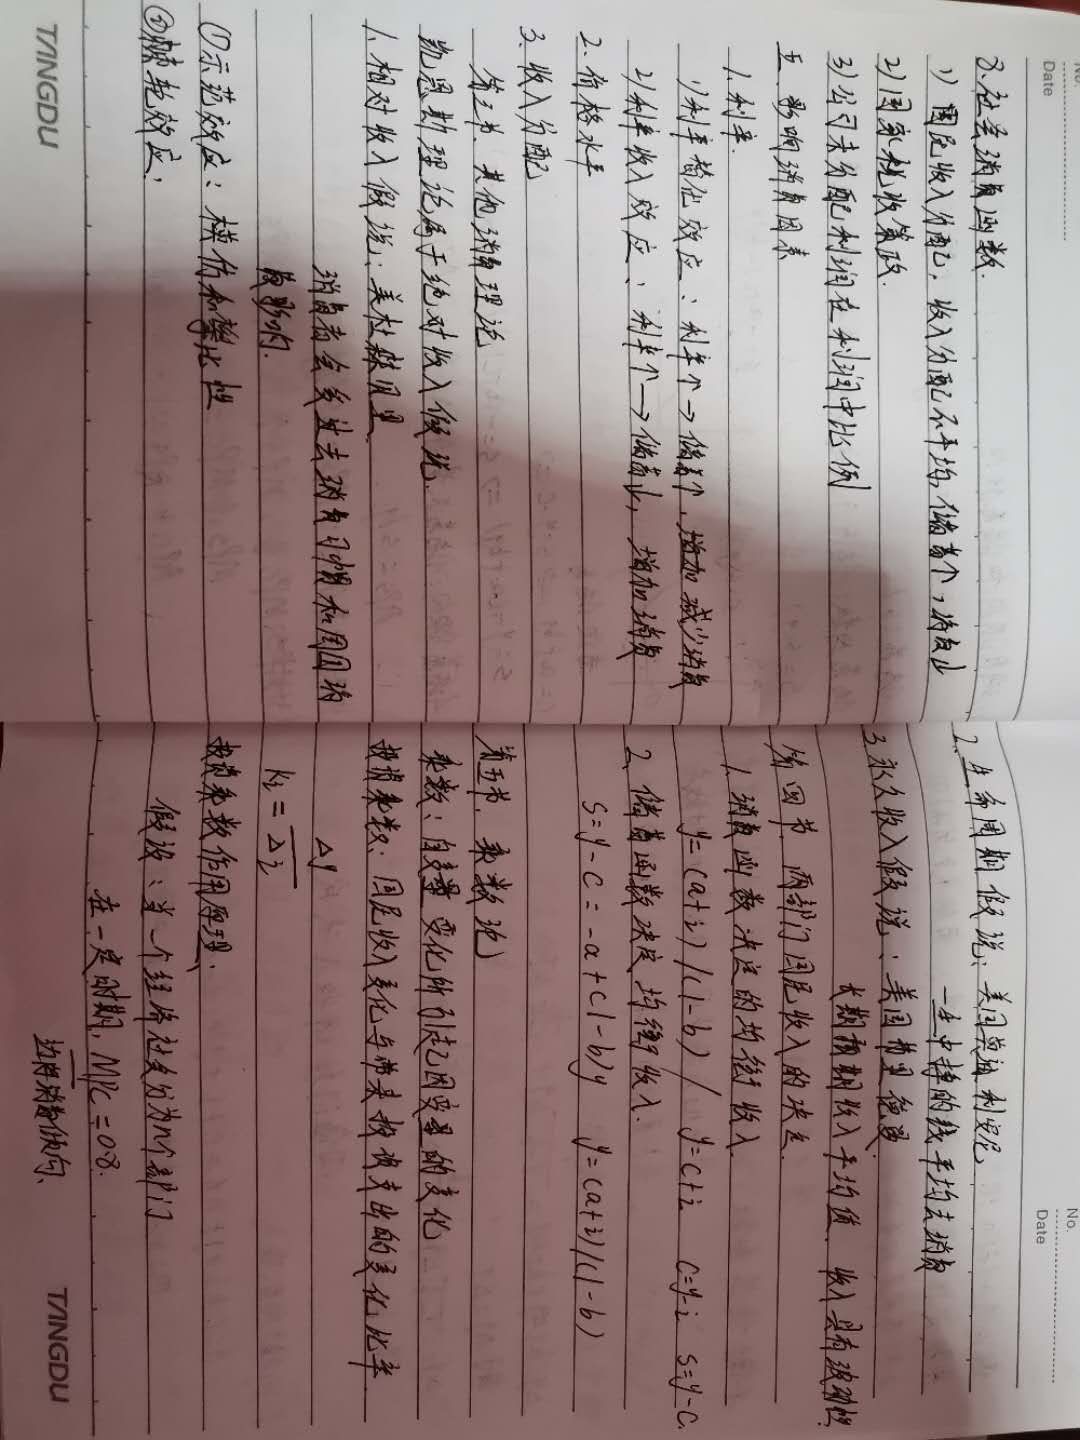 No.
Date
8.社会消费函数.
1) 国民收入分配,收入分配不平均,储蓄↑,消费↓
2) 国家税收策政.
3) 公司未分配利润在利润中比例
五、影响消费因素
1.利率.
1)利率替代效应:利率↑→储蓄↑,增加减少消费
2)利率收入效应:利率个→储蓄↓,增加消费
2.价格水平
3.收入分配
第三节、其他消费理论
凯恩斯理论属于绝对收入假说.
1.相对收入假说:美杜森贝里
消费者会受过去消费习惯和周围消
费影响.
①示范效应:模仿和攀比性
②棘轮效应:
TANGDU
No.
Date
2.生命周期假说:美国莫迪利安尼
一生中挣的钱平均去消费
3.永久收入假说:美国弗里德曼
长期预期收入平均值. 收入具有波动性.
第四节 两部门国民收入的决定
1.消费函数决定的均衡收入.
y=(a+i)/(1-b) / y=c+i c=y-i s=y-c.
2.储蓄函数决定均衡收入.
s=y-c=-a+(1-b)y y=(a+i)/(1-b)
第五节、乘数论
乘数:自变量变化所引起因变量的变化
投资乘数:国民收入变化与带来投资支出的变化比率
Δy
Ki=
Δi
投资乘数作用原理:
假设:当一个经济社会分为n个部门
在一定时期,MPC=0.8.
边际消费倾向.
TANGDU